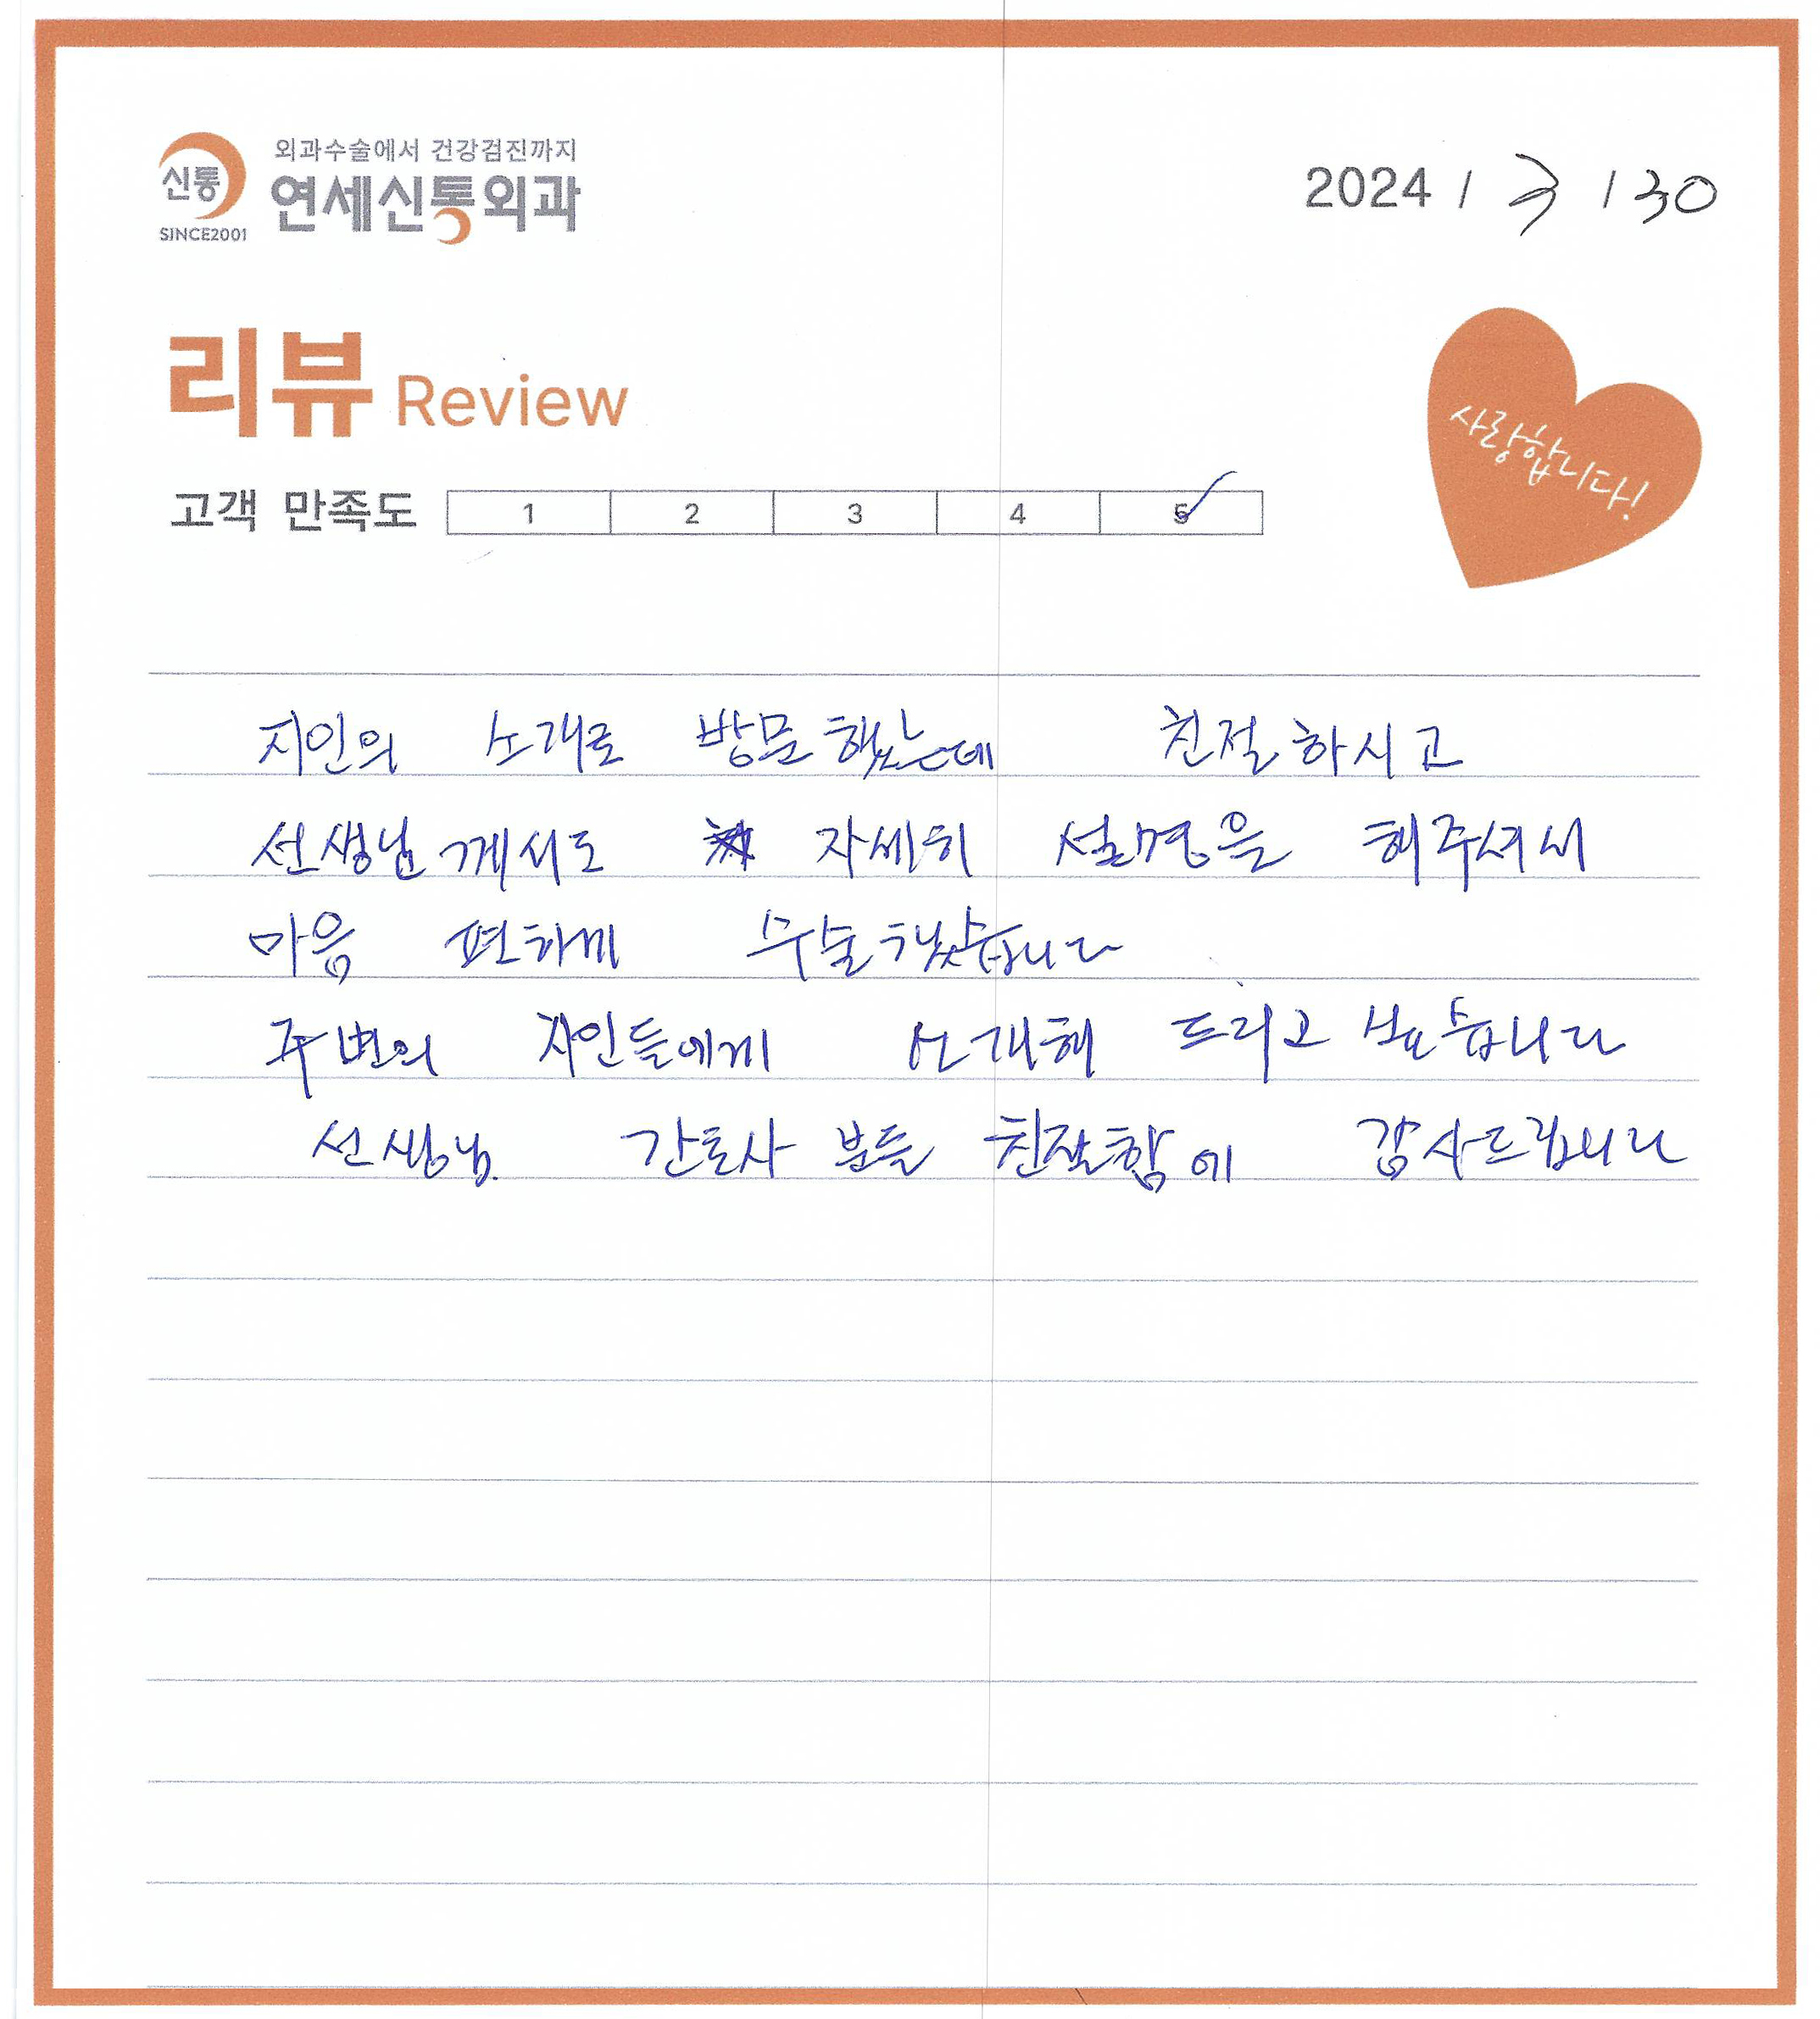 외과수술에서 건강검진까지
신통
연세신통외과
SINCE2001
2024 / 3 / 30
리뷰 Review
사랑합니다!
고객 만족도 1 2 3 4 5
지인의 소개로 방문했는데 친절하시고
선생님께서도 자세히 설명을 해주셔서
마음 편하게 수술했습니다
주변의 지인들에게 소개해 드리고 싶습니다
선생님. 간호사 분들 친절함에 감사드립니다